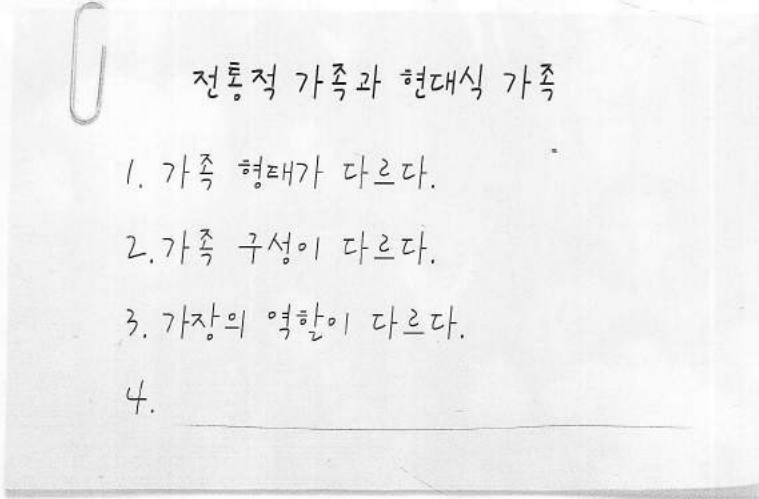 전통적 가족과 현대식 가족
1. 가족 형태가 다르다.
2. 가족 구성이 다르다.
3. 가장의 역할이 다르다.
4.